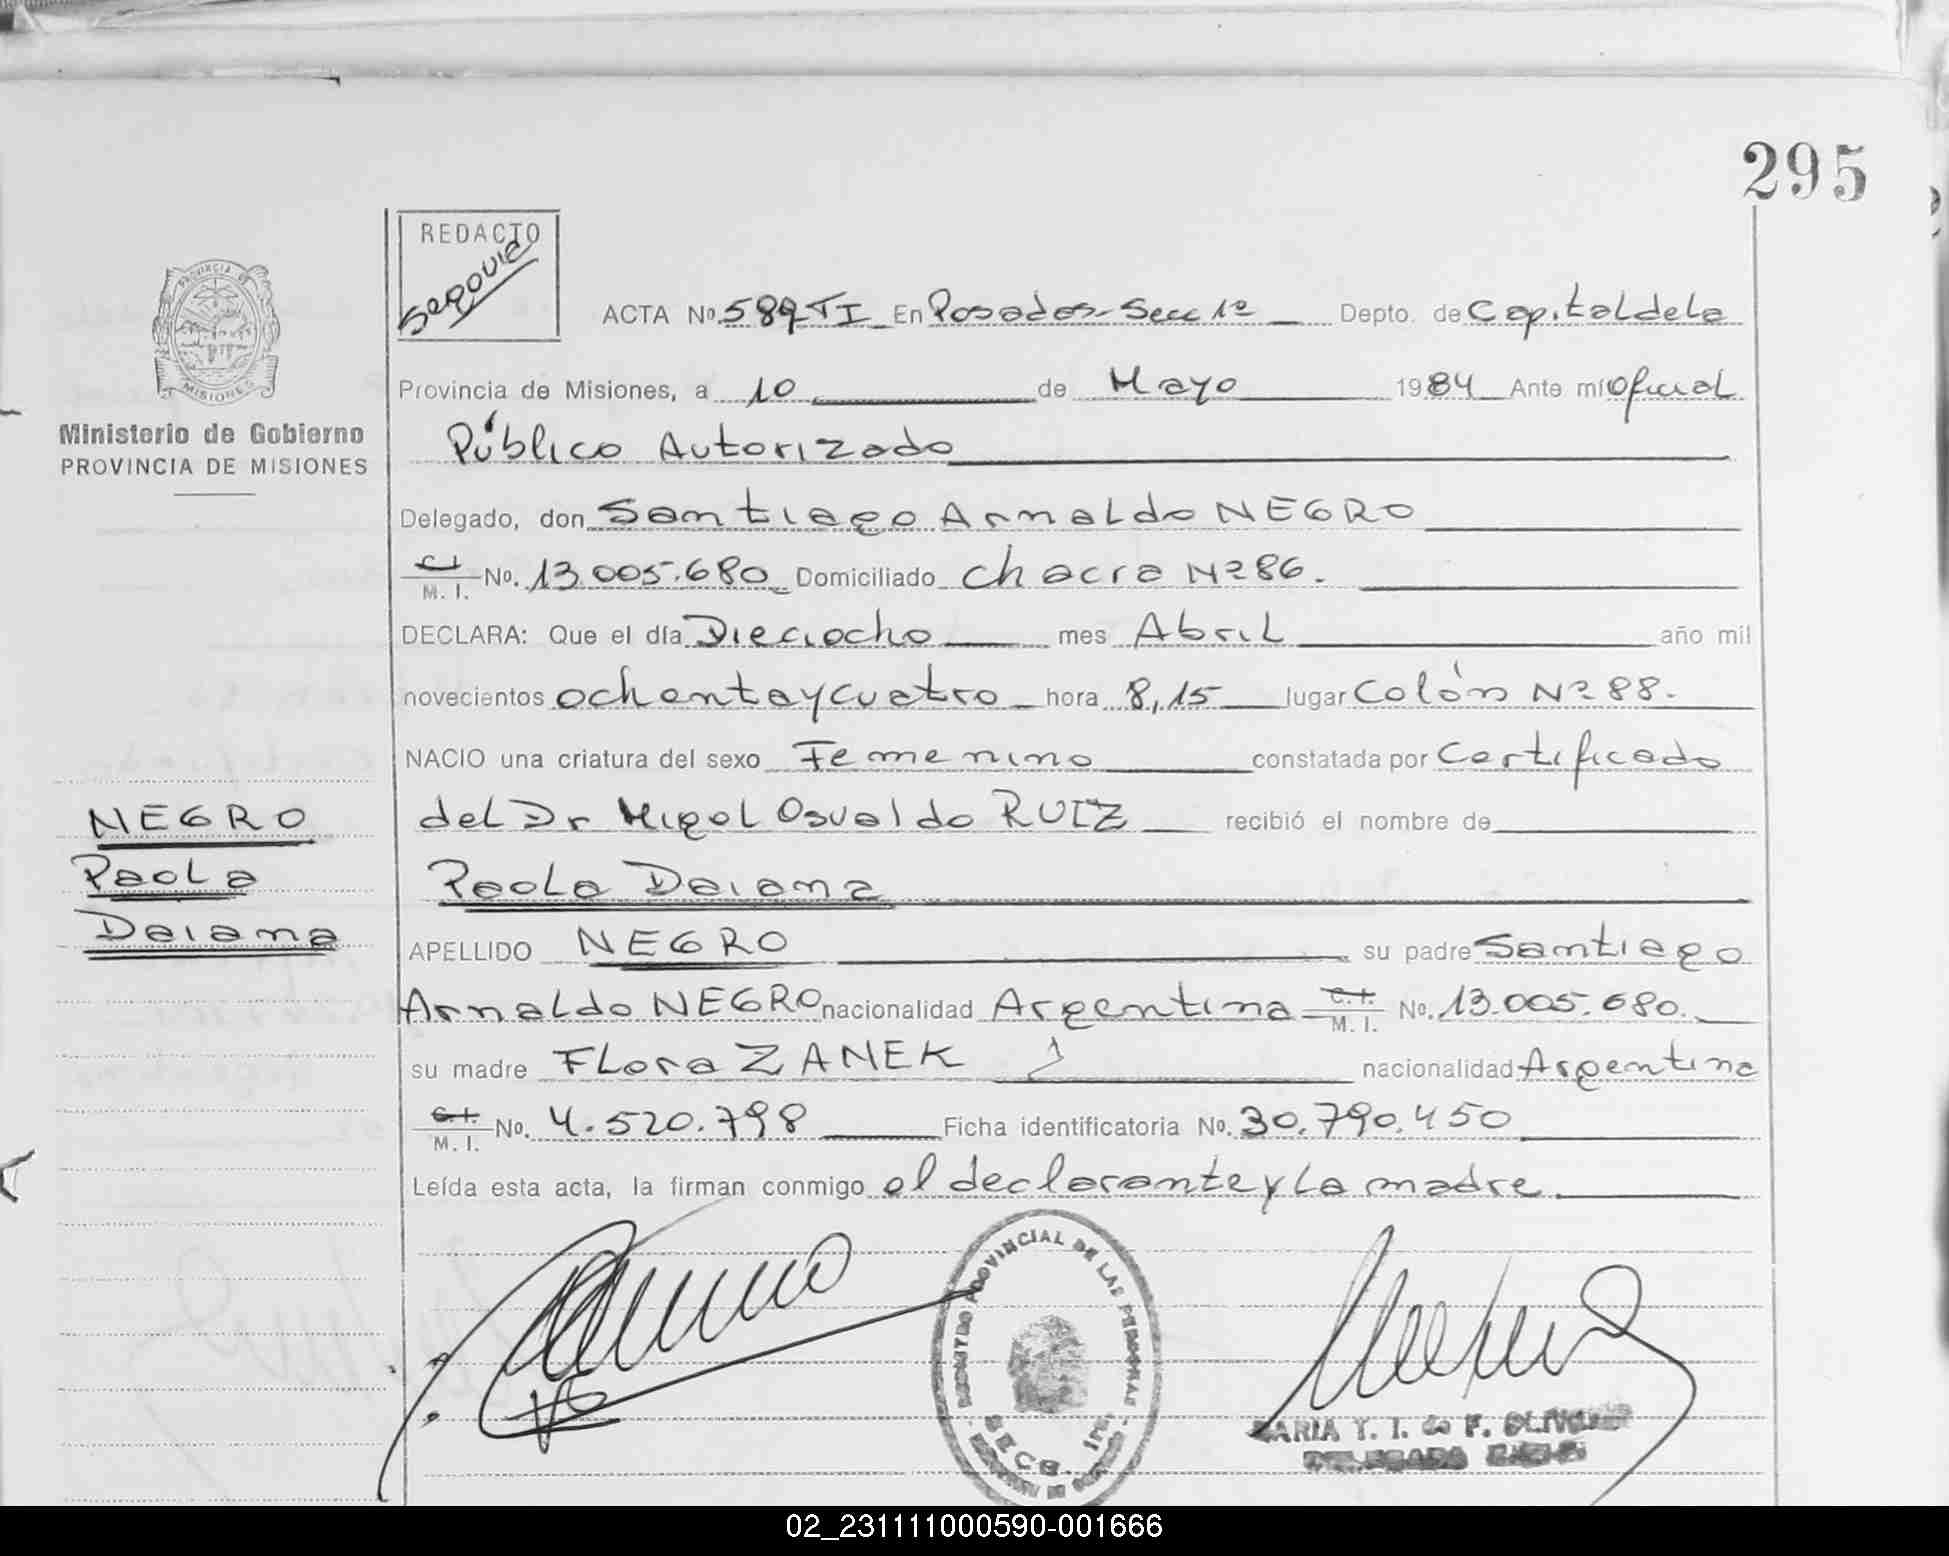 295
REDACTO
Segovia
PROVINCIA DE
MISIONES
Ministerio de Gobierno
PROVINCIA DE MISIONES
ACTA Nº 589 TI En Posadas-Secc 1º Depto. de Capital de la
Provincia de Misiones, a 10 de Mayo 1984 Ante mí Oficial
Público Autorizado
Delegado, don Santiago Arnaldo NEGRO
C.I.
M. I. Nº. 13.005.680 Domiciliado Chacra Nº 86.
DECLARA: Que el día Dieciocho mes Abril año mil
novecientos ochenta y cuatro hora 8,15 lugar Colón Nº 88.
NACIO una criatura del sexo Femenino constatada por Certificado
del Dr Migel Osvaldo RUIZ recibió el nombre de
Paola Daiana
APELLIDO NEGRO su padre Santiago
Arnaldo NEGRO nacionalidad Argentina C.I. M. I. Nº. 13.005.680.
su madre Flora ZANEK nacionalidad Argentina
C.I.
M. I. Nº. 4.520.798 Ficha identificatoria Nº. 30.790.450
Leída esta acta, la firman conmigo el declarante y la madre
NEGRO
Paola
Daiana
REGISTRO PROVINCIAL DE LAS PERSONAS
SECC. 1ra.
MARIA Y. I. de F.
DELEGADA
02_231111000590-001666